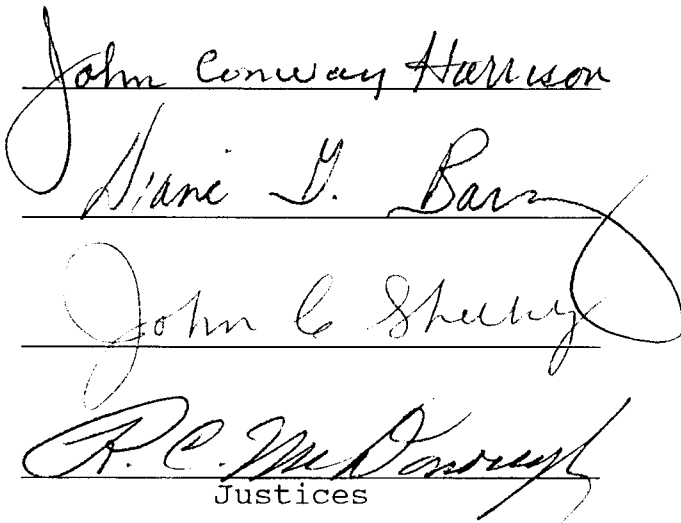 John Conway Harrison
Diane G. Barz
John C Sheehy
R. C. McDonough
Justices